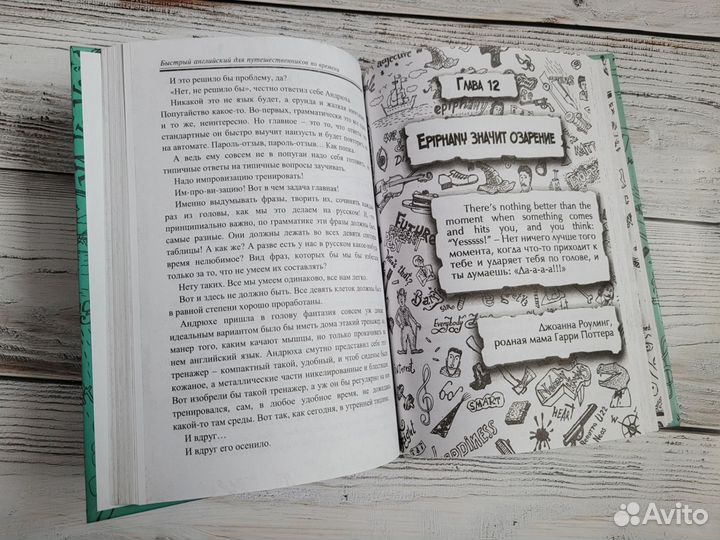 Быстрый английский для путешественников во времени
И это решило бы проблему, да?
«Нет, не решило бы», честно ответил себе Андрюха.
Никакой это не язык будет, а ерунда и жалкая
Попугайство какое-то. Во-первых, грамматические это все одни
и то же, неинтересно. Но главное – это то, что ответы на
стандартные он быстро выучит наизусть и будет повторять
на автомате. Пароль-отзыв, пароль-отзыв… Как попка.
А ведь ему совсем не в попугаи надо себя готовить,
типичные ответы на типичные вопросы заучивать.
Надо импровизацию тренировать!
Им-про-ви-зацию! Вот в чем задача главная!
Именно выдумывать фразы, творить их, сочинять каждый
раз из головы, как мы это делаем на русском! И,
принципиально важно, по грамматике эти фразы должны быть
самые разные. Они должны лежать во всех девяти клетках
таблицы! А как же? А разве есть у нас в русском какое-нибудь
время нелюбимое? Вид фраз, который бы мы бы избегали
только за то, что не умеем их составлять?
Нету таких. Все мы умеем одинаково, все нам легко.
Вот и здесь не должно быть. Все девять клеток должны быть
в равной степени хорошо проработаны.
Андрюхе пришла в голову фантазия совсем уж
идеальным вариантом было бы иметь дома этакий тренажер, на
манер того, каким качают мышцы, но только прокачивать на
нем английский язык. Андрюха смутно представил себе этот
тренажер – компактный такой, удобный, и чтоб сиденье было
кожаное, а металлические части никелированные и блестящие.
Вот изобрели бы такой тренажер, а уж он бы регулярно на нем
тренировался, сам, в любое удобное время, не дожидаясь
какой-то там среды. Вот так, как сегодня, в утренней тишине.
И вдруг…
И вдруг его осенило.
Глава 12
epiphany
Epiphany значит озарение
There's nothing better than the
moment when something comes
and hits you, and you think:
“Yesssss!” – Нет ничего лучше того
момента, когда что-то приходит к
тебе и ударяет тебя по голове, и
ты думаешь: «Да-а-а-а!!!»
Future
Everybody
Джоанна Роулинг,
родная мама Гарри Поттера
SMART
НЕДА
Avito